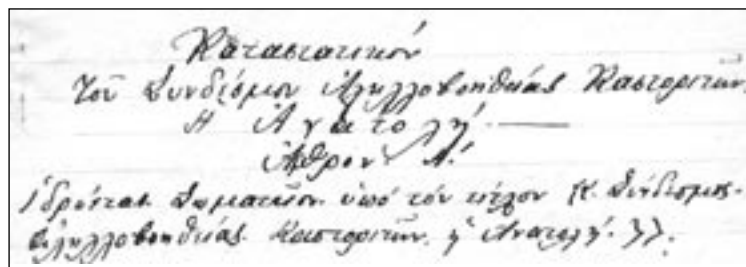 Καταστατικόν
Τοῦ Συνδέσμου Ἀλληλλοβοηθείας Καστοριτῶν.
Η Ἀνατολή ——
Ἄθρον Α!
Ἱδρύεται Σωματεῖον ὑπό τόν τίτλον <<. Σύνδεσμος.
Ἀλληλλοβοηθείας Καστοριτῶν. ἡ Ἀνατολή. >>.